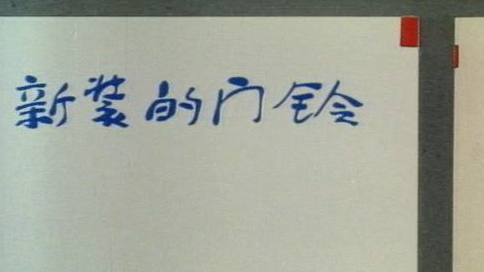 新装的门铃